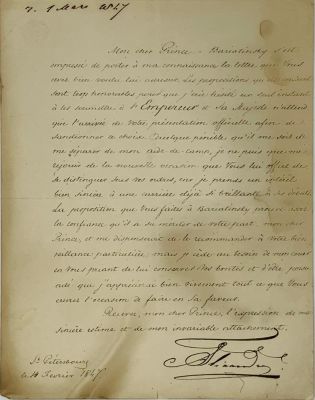 7. 1 Mars 1847
Mon cher Prince, Bariatinsky s'est
empressé de porter à ma connaissance la lettre que Vous
avez bien voulu lui adresser. Les propositions qu'elle contient
sont trop honorables pour que j'aie hésité un seul instant
à les soumettre à l'Empereur et Sa Majesté n'attend
que l'arrivée de Votre présentation officielle afin de
sanctionner ce choix. Quelque pénible qu'il me soit de
me séparer de mon aide de camp, je ne puis que me
réjouir de la nouvelle occasion que Vous lui offrez de
se distinguer sous vos ordres, car je prends un intérêt
bien sincère à une carrière déjà si brillante à ses débuts.
La proposition que Vous faites à Bariatinsky prouve
la confiance qu'il a su mériter de votre part, mon cher
Prince, et me dispenserait de le recommander à Votre bien
veillance particulière; mais je cède au besoin de mon cœur
en Vous priant de lui conserver Vos bontés et d'être persu
adé que j'apprécierai bien vivement tout ce que Vous
aurez l'occasion de faire en sa faveur.
Recevez, mon cher Prince, l'expression de ma
sincère estime et de mon invariable attachement.
St Petersbourg
le 4 Fevrier 1847.
Alexandre